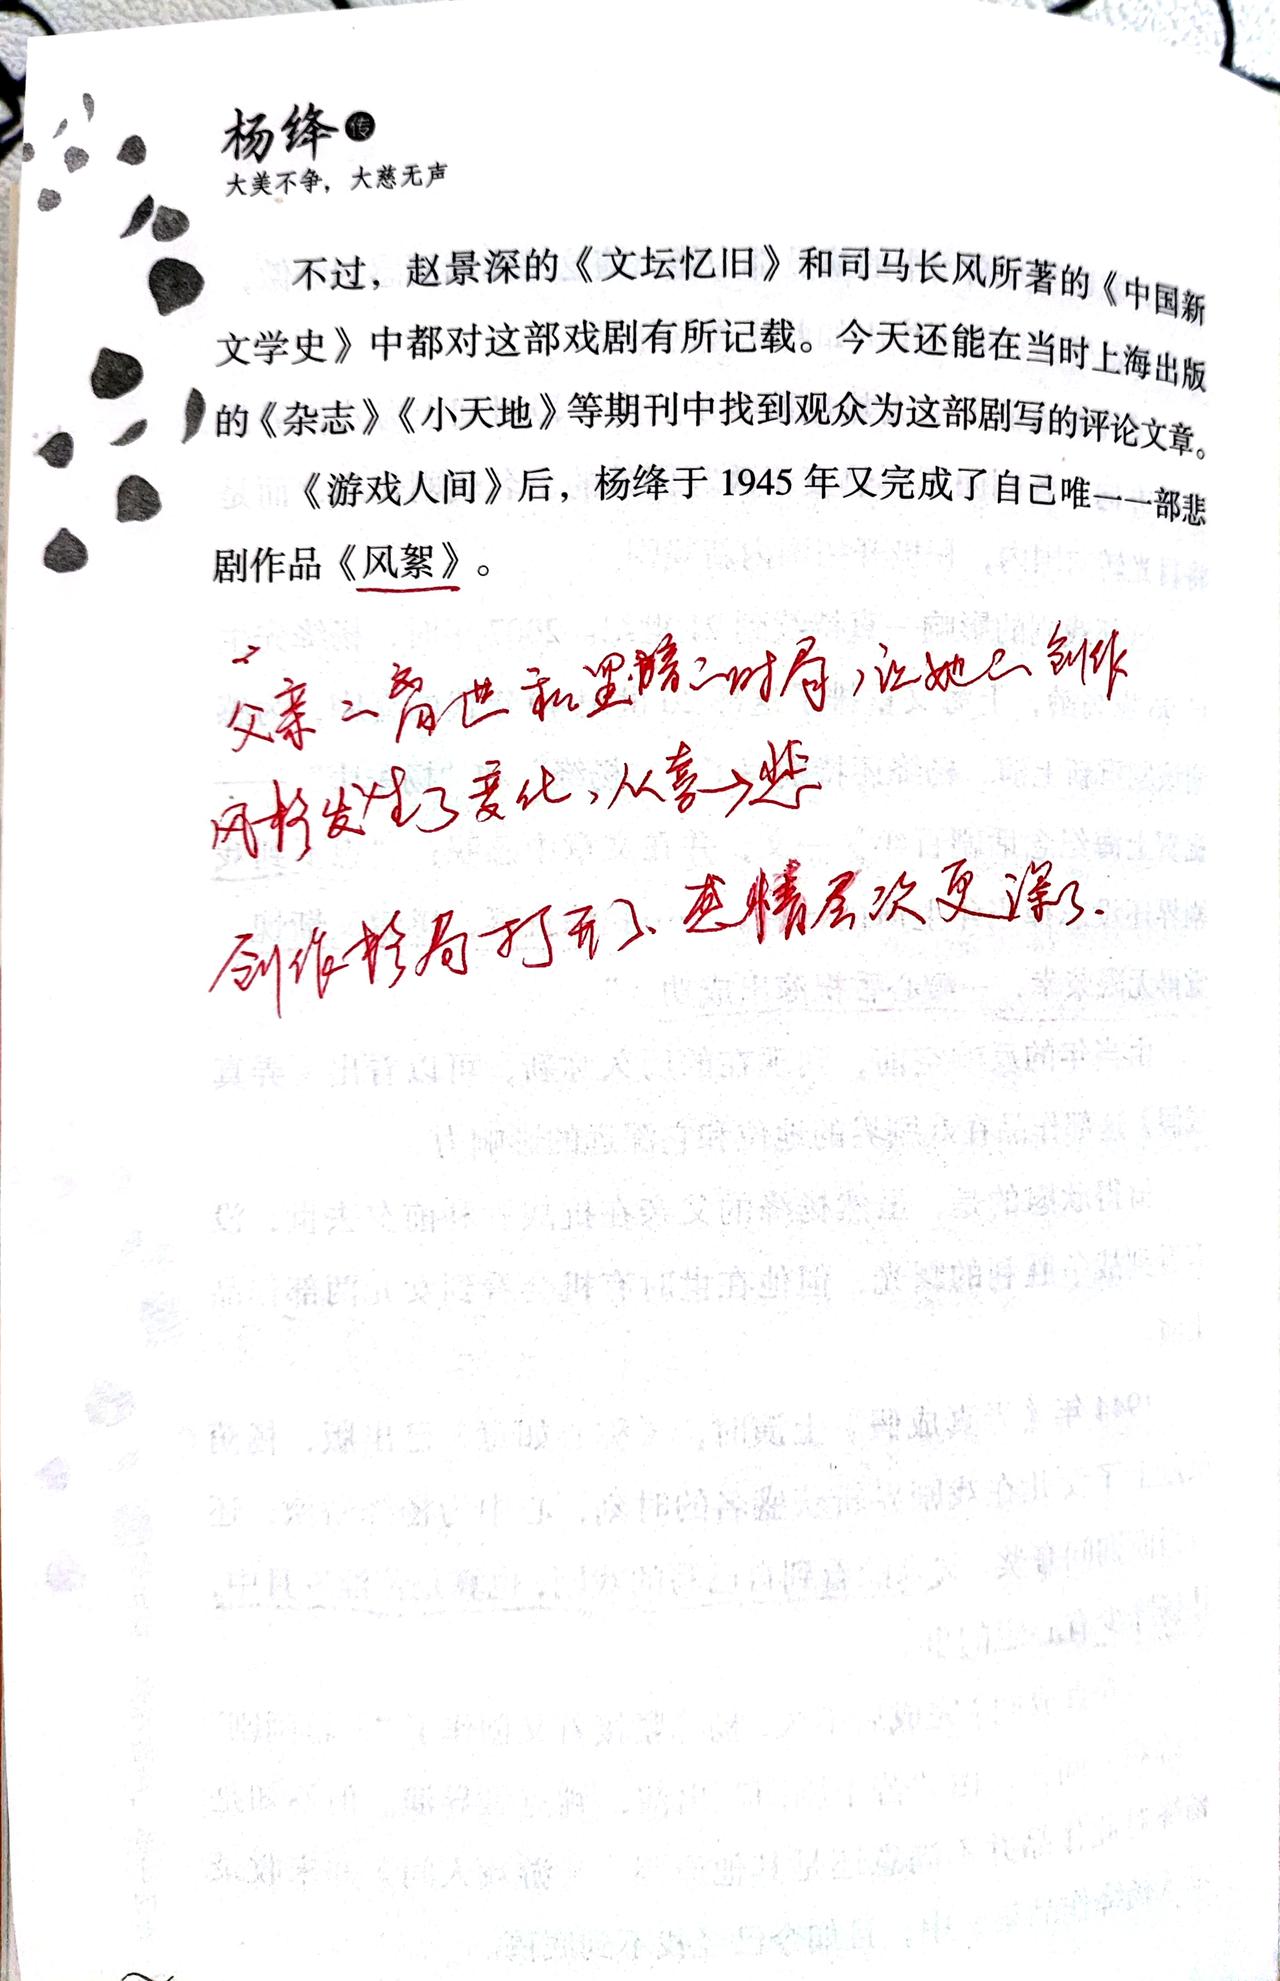 杨绛传
大美不争，大慈无声
不过，赵景深的《文坛忆旧》和司马长风所著的《中国新
文学史》中都对这部戏剧有所记载。今天还能在当时上海出版
的《杂志》《小天地》等期刊中找到观众为这部剧写的评论文章。
《游戏人间》后，杨绛于 1945 年又完成了自己唯一一部悲
剧作品《风絮》。
父亲之离世和黑暗之时局，让她之创作
风格发生了变化，从喜→悲
创作格局打开了、悲情层次更深了.